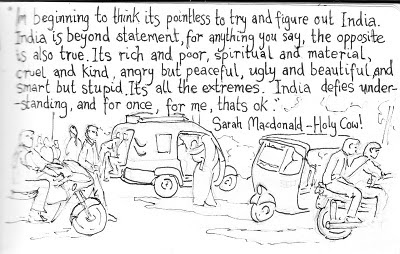 I'm beginning to think its pointless to try and figure out India.
India is beyond statement, for anything you say, the opposite
is also true. Its rich and poor, spiritual and material,
cruel and kind, angry but peaceful, ugly and beautiful and
smart but stupid. Its all the extremes. India defies under-
standing, and for once, for me, thats ok.
Sarah Macdonald - Holy Cow!